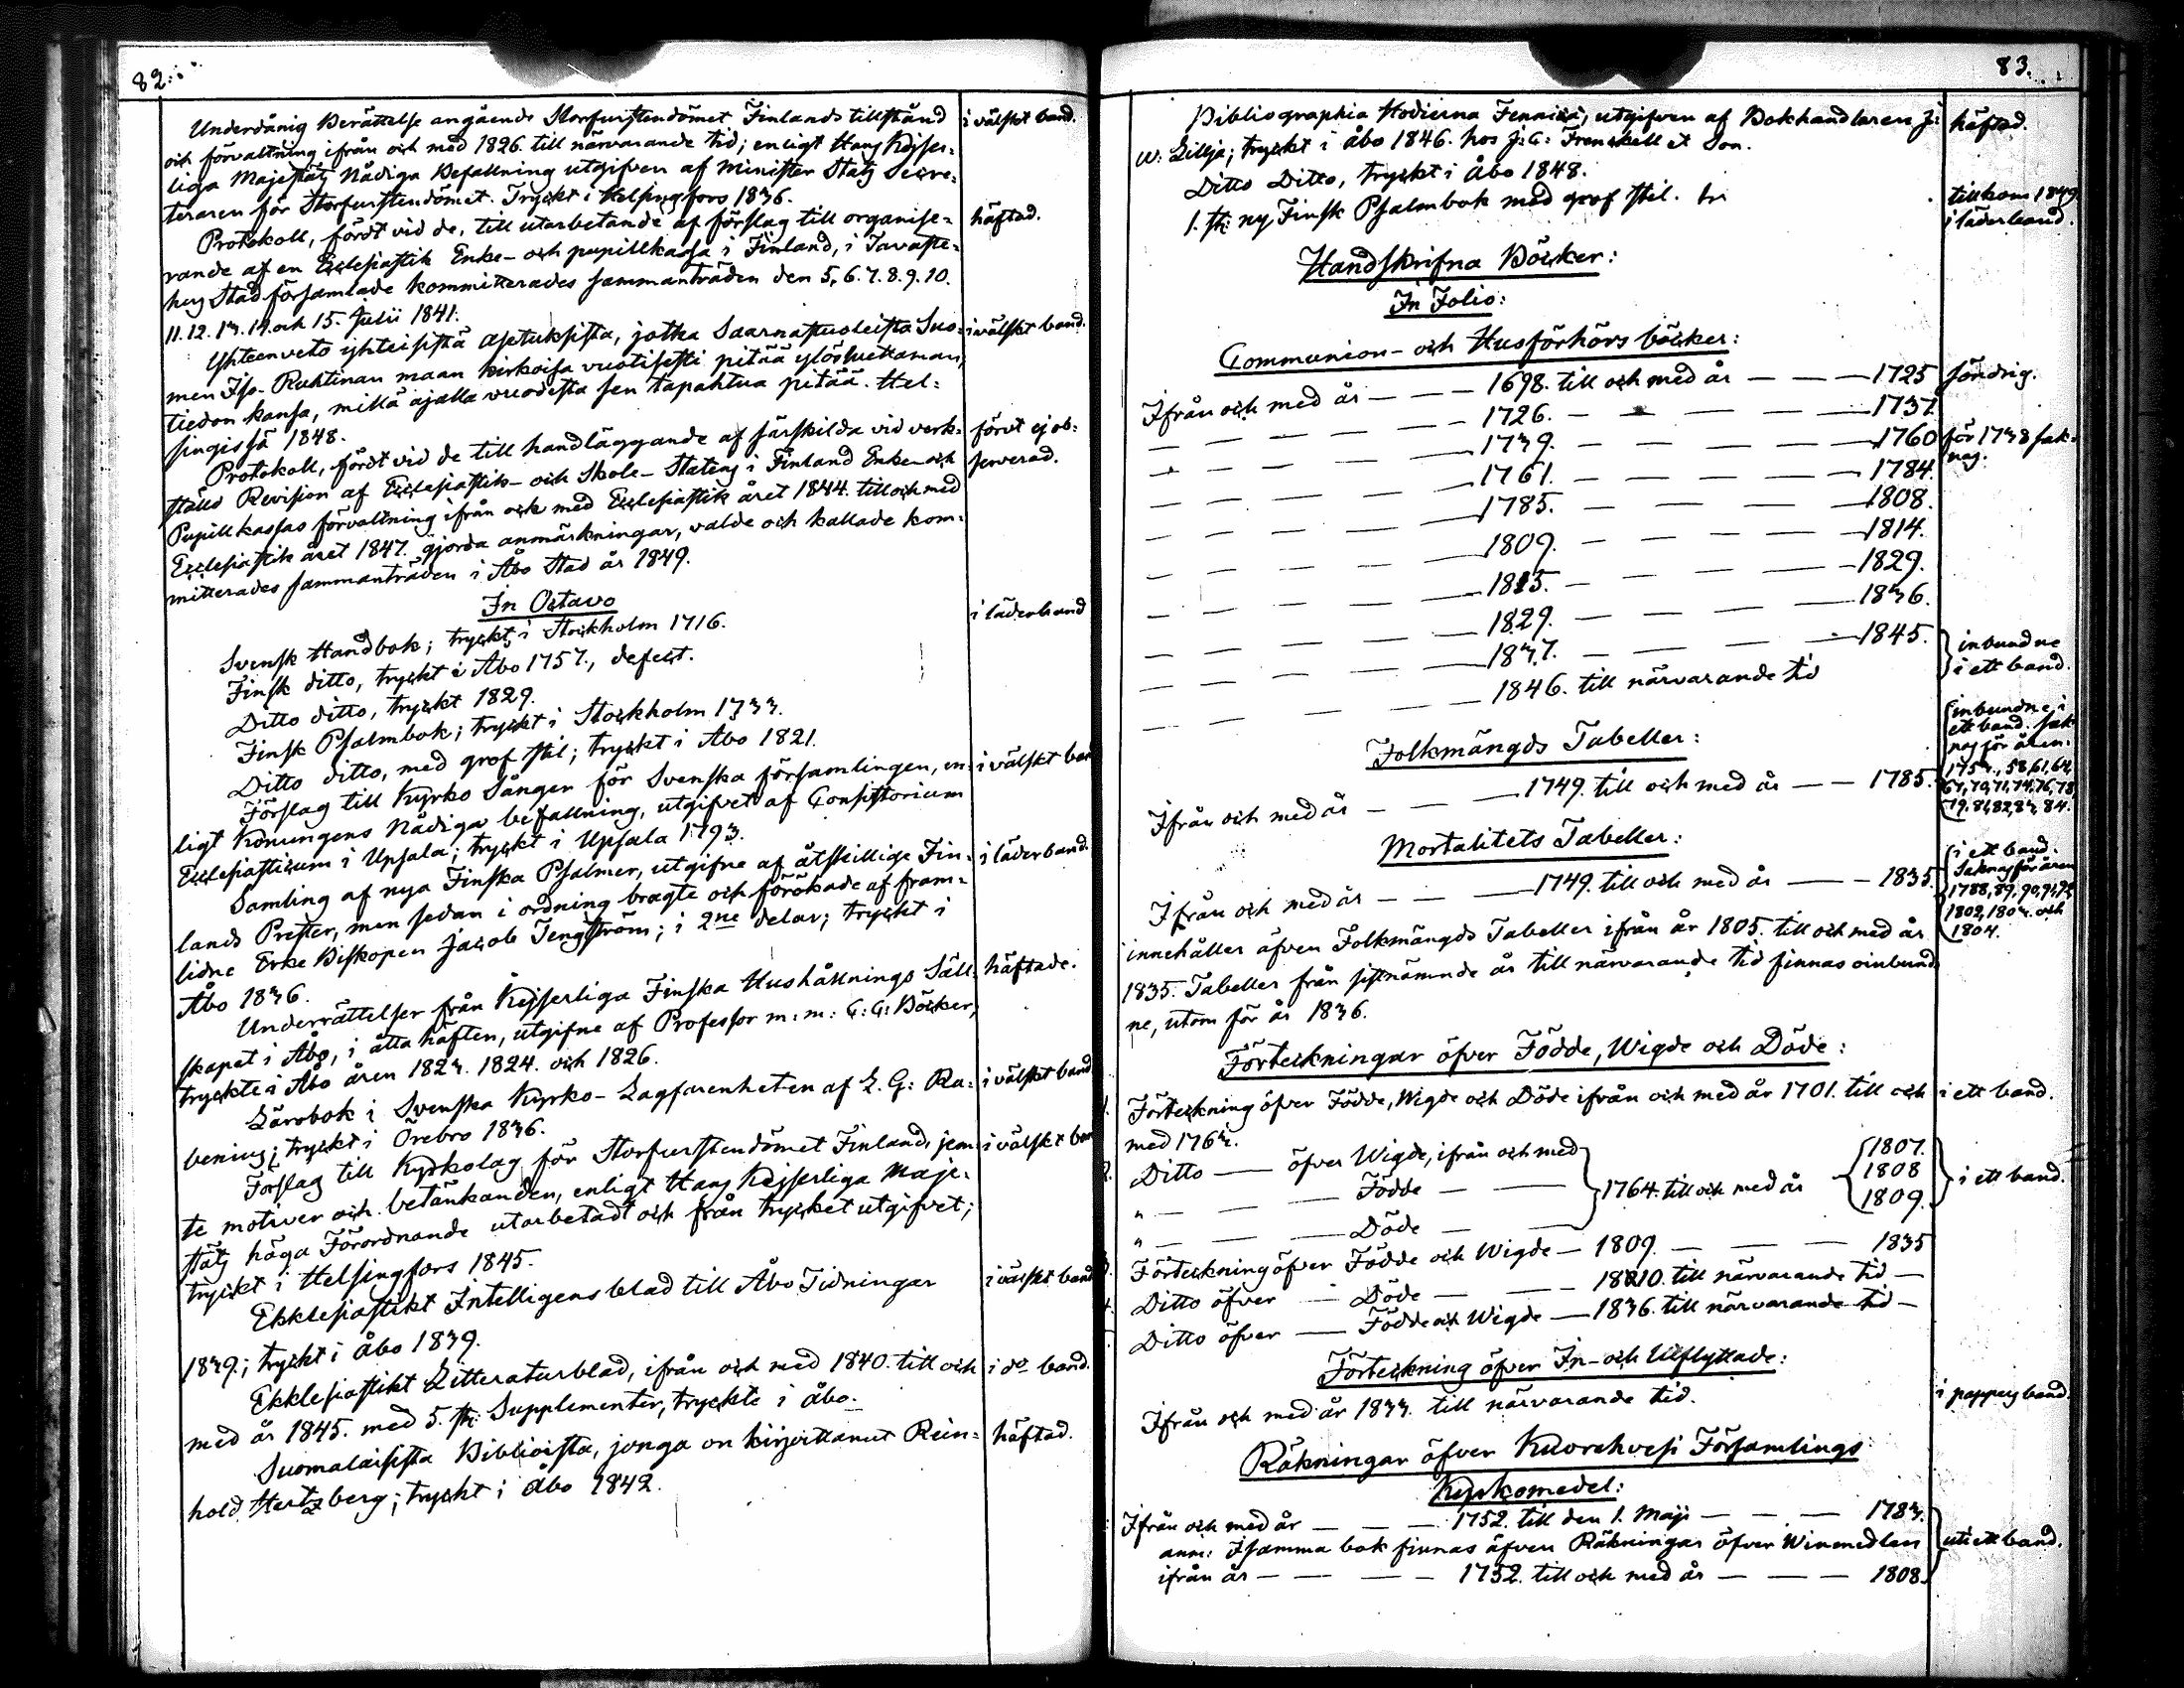 82.
Underdånig Berättelse angående Storfurstendömet Finlands tillstånd
i välskt band.
och förvaltning ifrån och med 1826. till närvarande tid; enligt Hans Kejser-
liga Majestäts Nådiga Befallning utgifven af Minister Stats Secre-
teraren för Storfurstendömet. Tryckt i Helsingfors 1836.
Protokoll, fördt vid de, till utarbetande af förslag till organise-
häftad.
rande af en Ecclesiastik Enke- och pupillkassa i Finland, i Tavaste-
hus Stad församlade kommitterades sammanträden den 5. 6. 7. 8. 9. 10.
11. 12. 13. 14. och 15. Julii 1841.
Yhteenveto yhteisistä asetuksista, jotka Saarnastuoleista Suo-
i välskt band.
men Iso-Ruhtinan maan kirkoisa vuotisesti pitää ylösluettaman,
tiedon kansa, millä ajalla vuodesta sen tapahtua pitää. Hel-
singissä 1848.
Protokoll, fördt vid de till handläggande af särskilda vid verk-
förut ej ob-
serverad.
ställd Revision af Ecclesiastik- och Skole-Statens i Finland Enke- och
Pupillkassas förvaltning ifrån och med Ecclesiastik året 1844. till och med
Ecclesiastik året 1847. gjorda anmärkningar, valde och kallade kom-
mitterades sammanträden i Åbo Stad år 1849.
In Octavo
Svensk Handbok; tryckt i Stockholm 1716.
i läderband
Finsk ditto, tryckt i Åbo 1757., defect.
Ditto ditto, tryckt 1829.
Finsk Psalmbok; tryckt i Stockholm 1733.
Ditto ditto, med grof stil; tryckt i Åbo 1821.
Förslag till Kyrko Sången för Svenska församlingen, en-
i välskt ban
ligt Konungens Nådiga befallning, utgifvet af Consistorium
Ecclesiasticum i Upsala; tryckt i Upsala 1793.
Samling af nya Finska Psalmer, utgifne af åtskillige Fin-
i läderband.
lands Prester, men sedan i ordning bragte och förökade af fram-
lidne Erke Biskopen Jacob Tengström; i 2ne delar; tryckt i
Åbo 1836.
Underrättelser från Kejserliga Finska Hushållnings Säll-
häftade.
skapet i Åbo, i åtta häften, utgifne af Professor m: m: C: C: Böcker;
tryckte i Åbo åren 1823. 1824. och 1826.
Lärobok i Svenska Kyrko-Lagfarenheten af L. G: Ra-
i välskt band
benius; tryckt i Örebro 1836.
Förslag till Kyrkolag för Storfurstendömet Finland, jem-
i välskt ban
te motiver och betänkanden, enligt Hans Kejserliga Maje-
stäts höga Förordnande utarbetadt och från trycket utgifvet;
tryckt i Helsingfors 1845.
Ekklesiastikt Intelligensblad till Åbo Tidningar
i välskt band
1839.; tryckt i Åbo 1839.
Ekklesiastikt Litteraturblad, ifrån och med 1840. till och
i do band.
med år 1845. med 5. st: Supplementer, tryckte i Åbo.
Suomalaisista Biblioista, jonga on kirjoittanut Rein-
häftad.
hold Hertzberg; tryckt i Åbo 1842.
83.
Bibliographia Hodierna Fennica, utgifven af Bokhandlaren J:
häftad.
W: Lillja; tryckt i Åbo 1846. hos J: C: Frenckell et Son.
Ditto Ditto, tryckt i Åbo 1848.
1. st: ny Finsk Psalmbok med grof stil.
tillkom 1849.
i läderband.
Handskrifna Böcker:
In Folio:
Communion- och Husförhörs böcker:
Ifrån och med år — — — 1698. till och med år — — — 1725
söndrig.
— — — — 1726. — — — — 1737.
— — — — 1739. — — — — 1760
för 1738 sak-
nas.
— — — — 1761. — — — — 1784.
— — — — 1785. — — — — 1808.
— — — — 1809. — — — — 1814.
— — — — 1815. — — — — 1829.
— — — — 1829. — — — — 1836.
— — — — 1837. — — — — 1845.
inbundne
i ett band.
— — — — 1846. till närvarande tid
Folkmängds Tabeller:
inbundne i
ett band. sak-
nas för åren.
Ifrån och med år — — — 1749. till och med år — — 1785.
1753., 58, 61, 64,
67, 70, 71, 74, 76, 78,
79. 81, 82, 83, 84.
Mortalitets Tabeller:
Ifrån och med år — — — 1749. till och med år — — 1835.
i ett band.
Saknas för åren
1802, 1803. och
1804.
innehåller äfven Folkmängds Tabeller ifrån år 1805. till och med år
1835. Tabeller från sistnämnde år till närvarande tid finnas oinbund-
ne, utom för år 1836.
Förteckningar öfver Födde, Wigde och Döde:
1. Förteckning öfver Födde, Wigde och Döde ifrån och med år 1701. till och
i ett band.
med 1763.
2. Ditto — öfver Wigde, ifrån och med
1807.
" — — — Födde — — 1764. till och med år 1808
i ett band.
" — — — Döde — — 1809.
3. Förteckning öfver Födde och Wigde — 1809. — — — 1835
4. Ditto öfver — Döde — — — 1810. till närvarande tid —
Ditto öfver — Födde och Wigde — 1836. till närvarande tid —
Förteckning öfver In- och Utflyttade:
Ifrån och med år 1833. till närvarande tid.
i pappersband.
Räkningar öfver Kuorehvesi Församlings
Kyrkomedel:
Ifrån och med år — — — 1752. till den 1. Maji — — — 1783.
anm: I samma bok finnas äfven Räkningar öfver Winmedlen
uti ett band.
ifrån år — — — — 1752. till och med år — — — 1808.